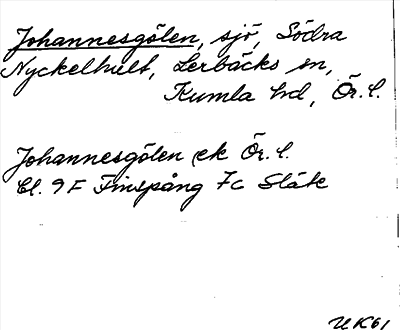 Johannesgölen, sjö, Södra
Nyckelhult, Lerbäcks sn,
Kumla hd, Ör. l.
Johannesgölen ek Ör. l.
Bl. 9F Finspång 7c
UK61